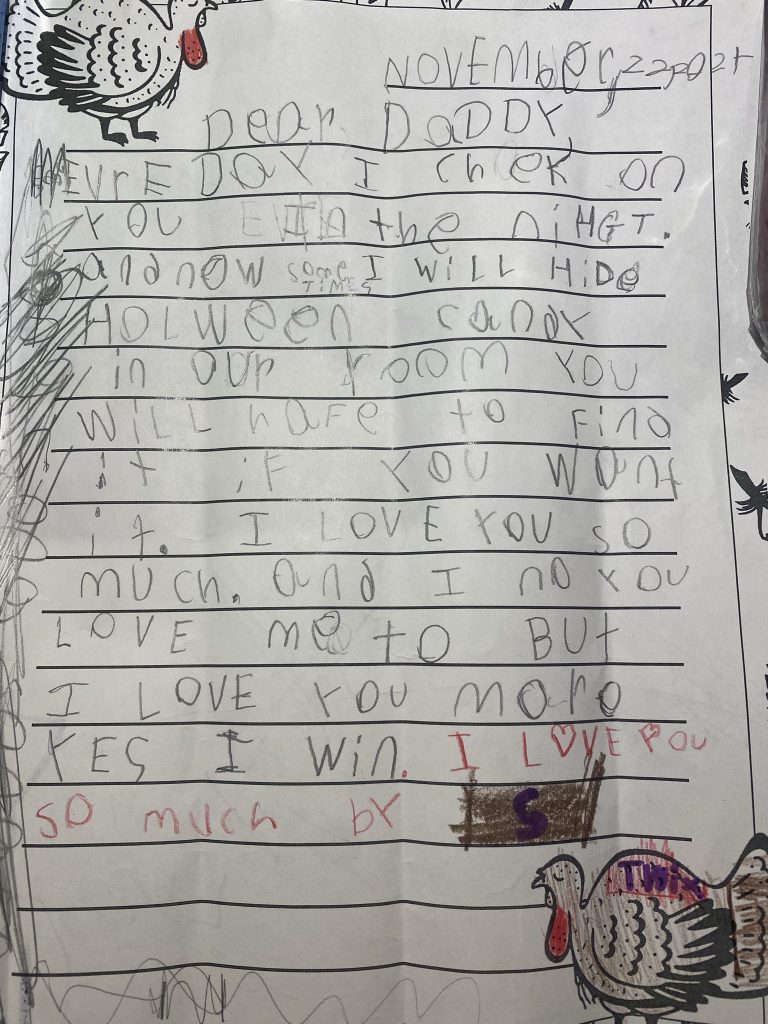 NOVEMber, 22, 2021
Dear DaDDY,
EVrE DaY I chek on
YOU In the niHGT.
and now some TIMES I WiLL HiDe
HOLWeen candy
in our room YOU
WiLL hafe to Find
it if YOU Want
it. I LOVE YOU so
much. and I no YOU
LOVE me to BUt
I LOVE YOU more
YES I Win. I LOVE YOU
so much bY S
TWix